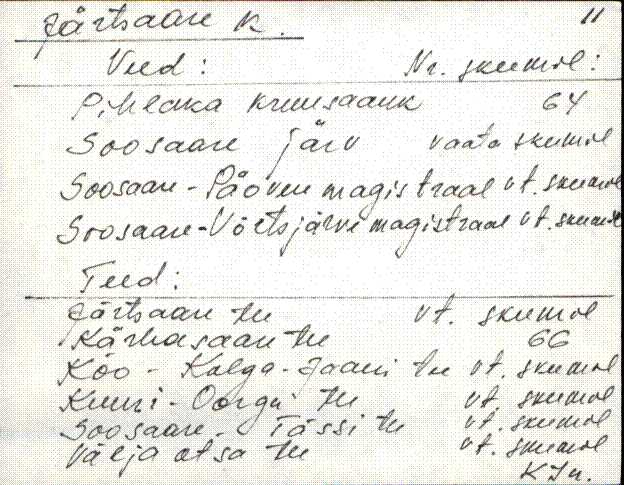 Järtsaare k. 11
Veed: Nr. skeemil:
Pihlaka kruusaauk 64
Soosaare järv vaata skeemil
Soosaare-Päoveri magistraal vt. skeemil
Soosaare-Võrtsjärve magistraal vt. skeemil
Teed:
Järtsaare tee vt. skeemil
Kärhasaare tee 66
Kõo - Kolga-Jaani tee vt. skeemil
Kuusi-Oorgu tee vt. skeemil
Soosaare- Tässi tee vt. skeemil
Välja otsa tee vt. skeemil